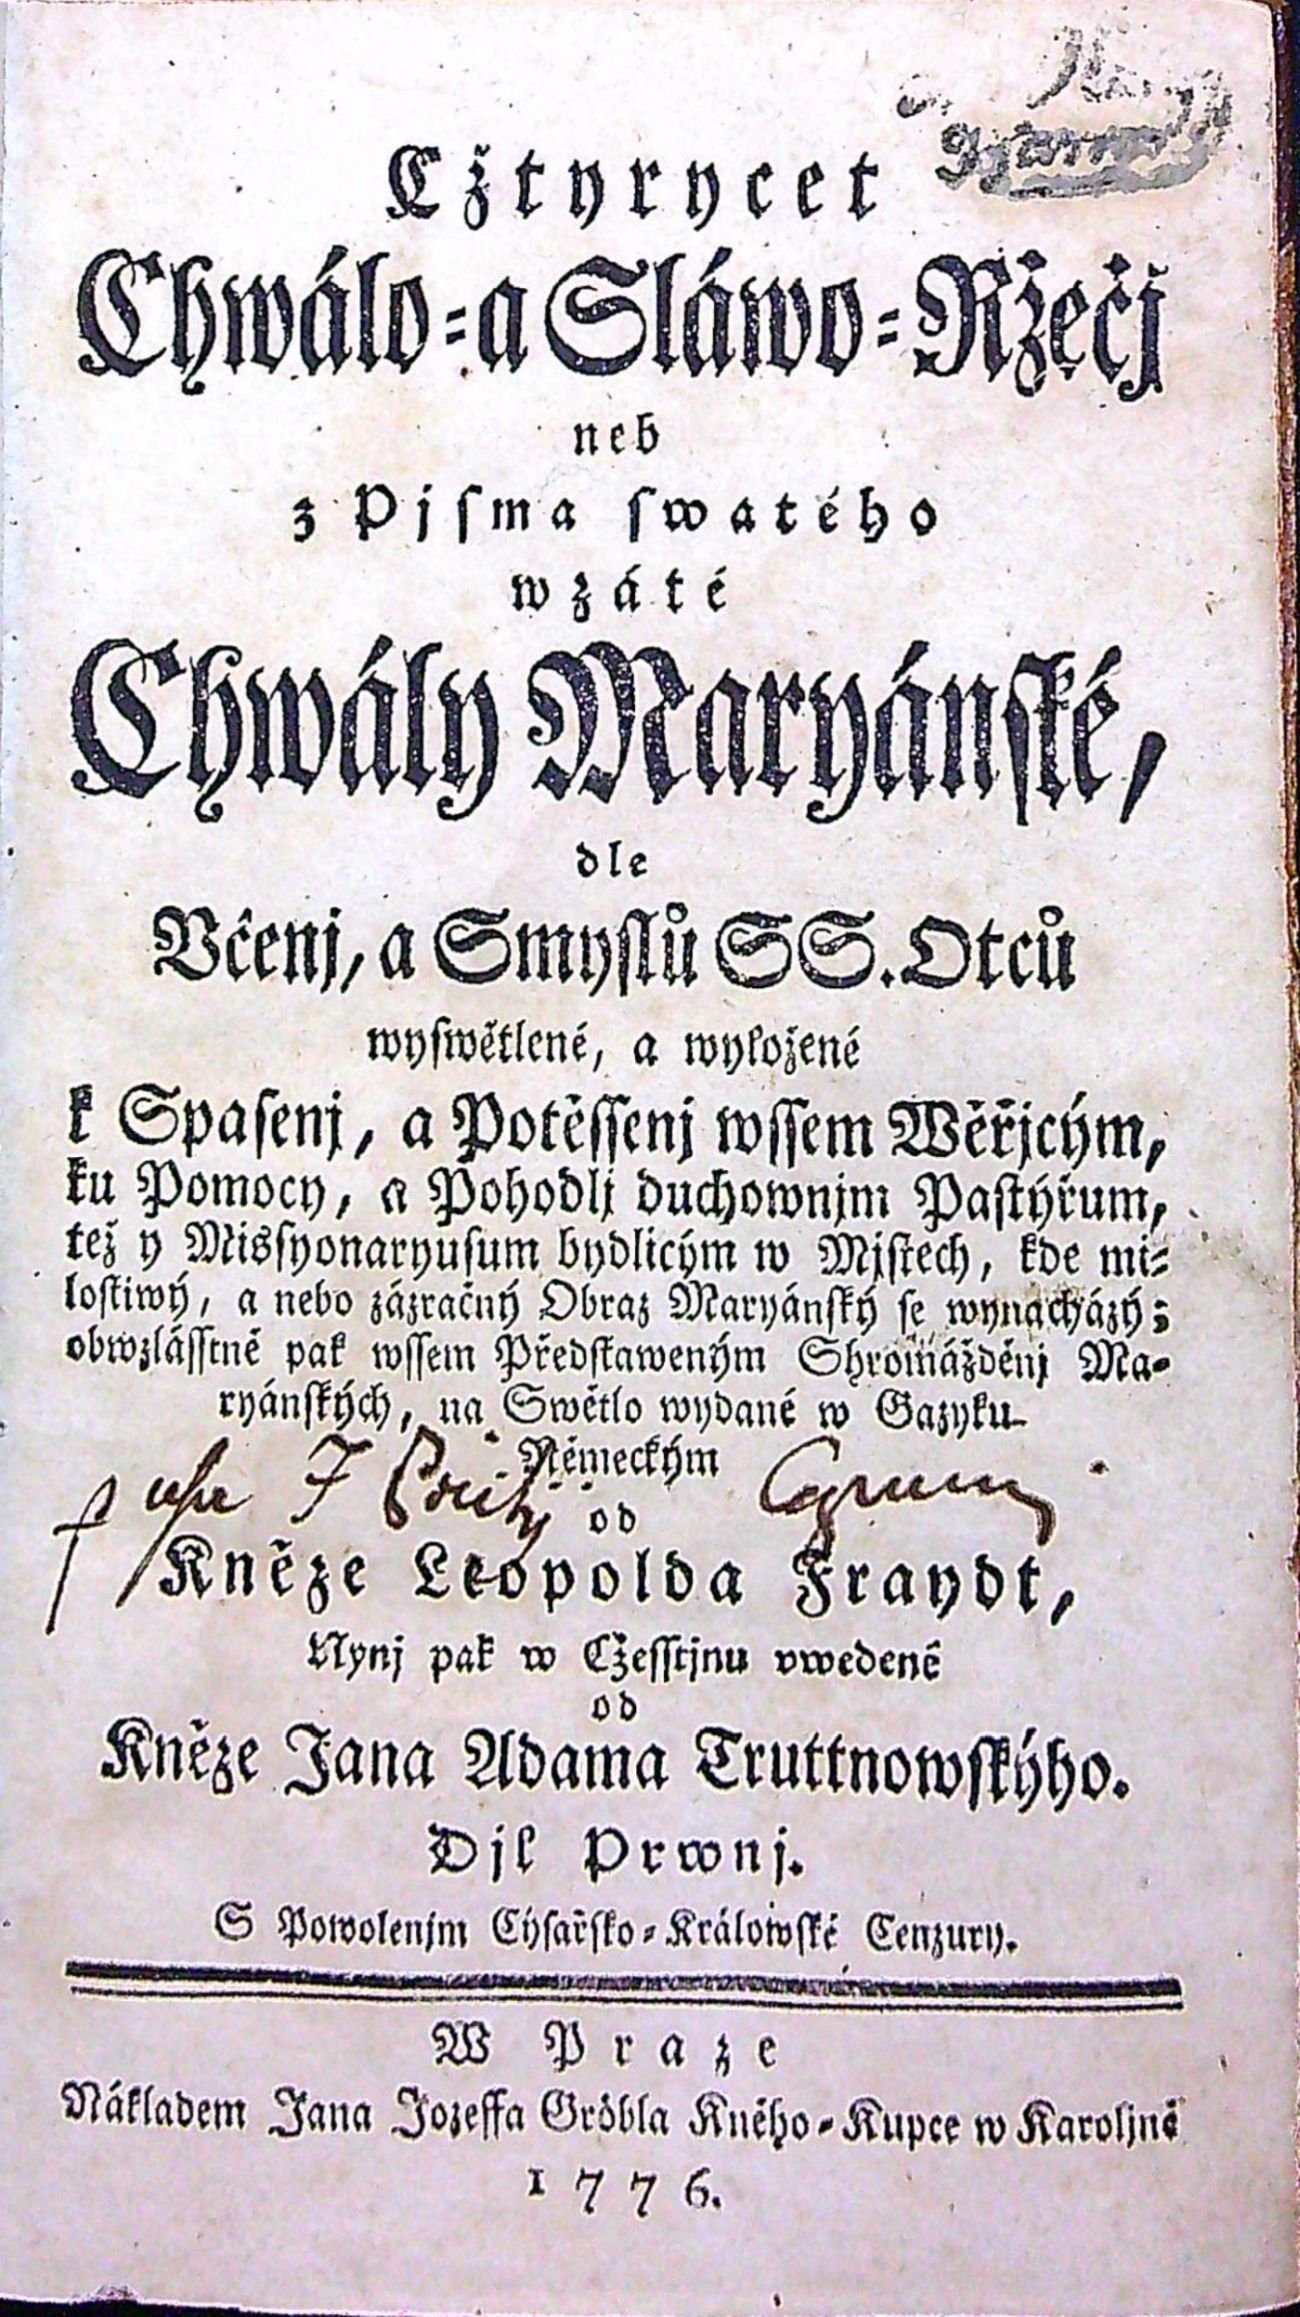 Cžtyrycet
Chwálo=a Sláwo=Ržečj
neb
z Pjsma swatého
wzáté
Chwály Maryánské,
dle
Včenj, a Smyslů SS. Otců
wyswětlené, a wyložené
k Spasenj, a Potěssenj wssem Wěřjcým,
ku Pomocy, a Pohodlj duchownjm Pastýřum,
též y Missyonaryusum bydlicým w Mjstech, kde mi=
lostiwý, a nebo zázračný Obraz Maryánský se wynacházý;
obwzlásstně pak wssem Představeným Shromážděnj Ma=
ryánských, na Swětlo wydané w Gazyku
Německým
od
Kněze Leopolda Fraydt,
Nynj pak w Cžesstjnu vwedené
od
Kněze Jana Adama Truttnowskýho.
Djl Prwnj.
S Powolenjm Cýsařsko=Králowské Cenzury.
W Praze
Nákladem Jana Jozeffa Gröbla Kněho=Kupce w Karoljně
1776.